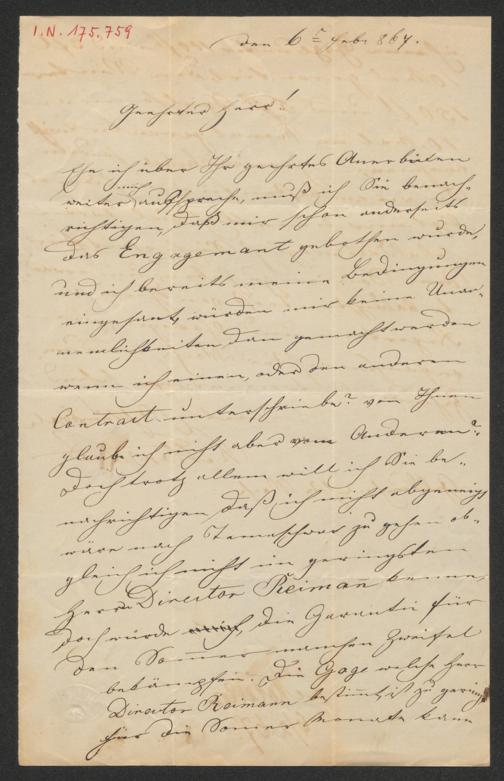 I.N. 175.759
den 6t Feb. 867.
Geehrter Herr!
Ehe ich über Ihr geehrtes Anerbieten
weiter mich aufspreche, muß ich Sie benach-
richtigen, daß mir schon anderseits
das Engagemant gebothen wurde,
und ich bereits meine Bedingungen
eingesant, würden mir keine Unan-
nemlichkeiten dan gemacht werden
wenn ich einen, oder den anderen
Contract unterschriebe? von Ihnen
glaube ich nicht aber vom Anderen?
Doch trotz allem will ich Sie be-
nachrichtigen daß ich nicht abgeneigt
wäre nach Temeschwar zu gehen ob-
gleich ich nicht im geringsten
Herrn Director Reimann kenne,
doch würde die Garantie für
den Sommer manchen Zweifel
bekämpfen. Die Gage welche Herr
Director Reimann bestimmt, ist zu gering
für die Somer Monate kann